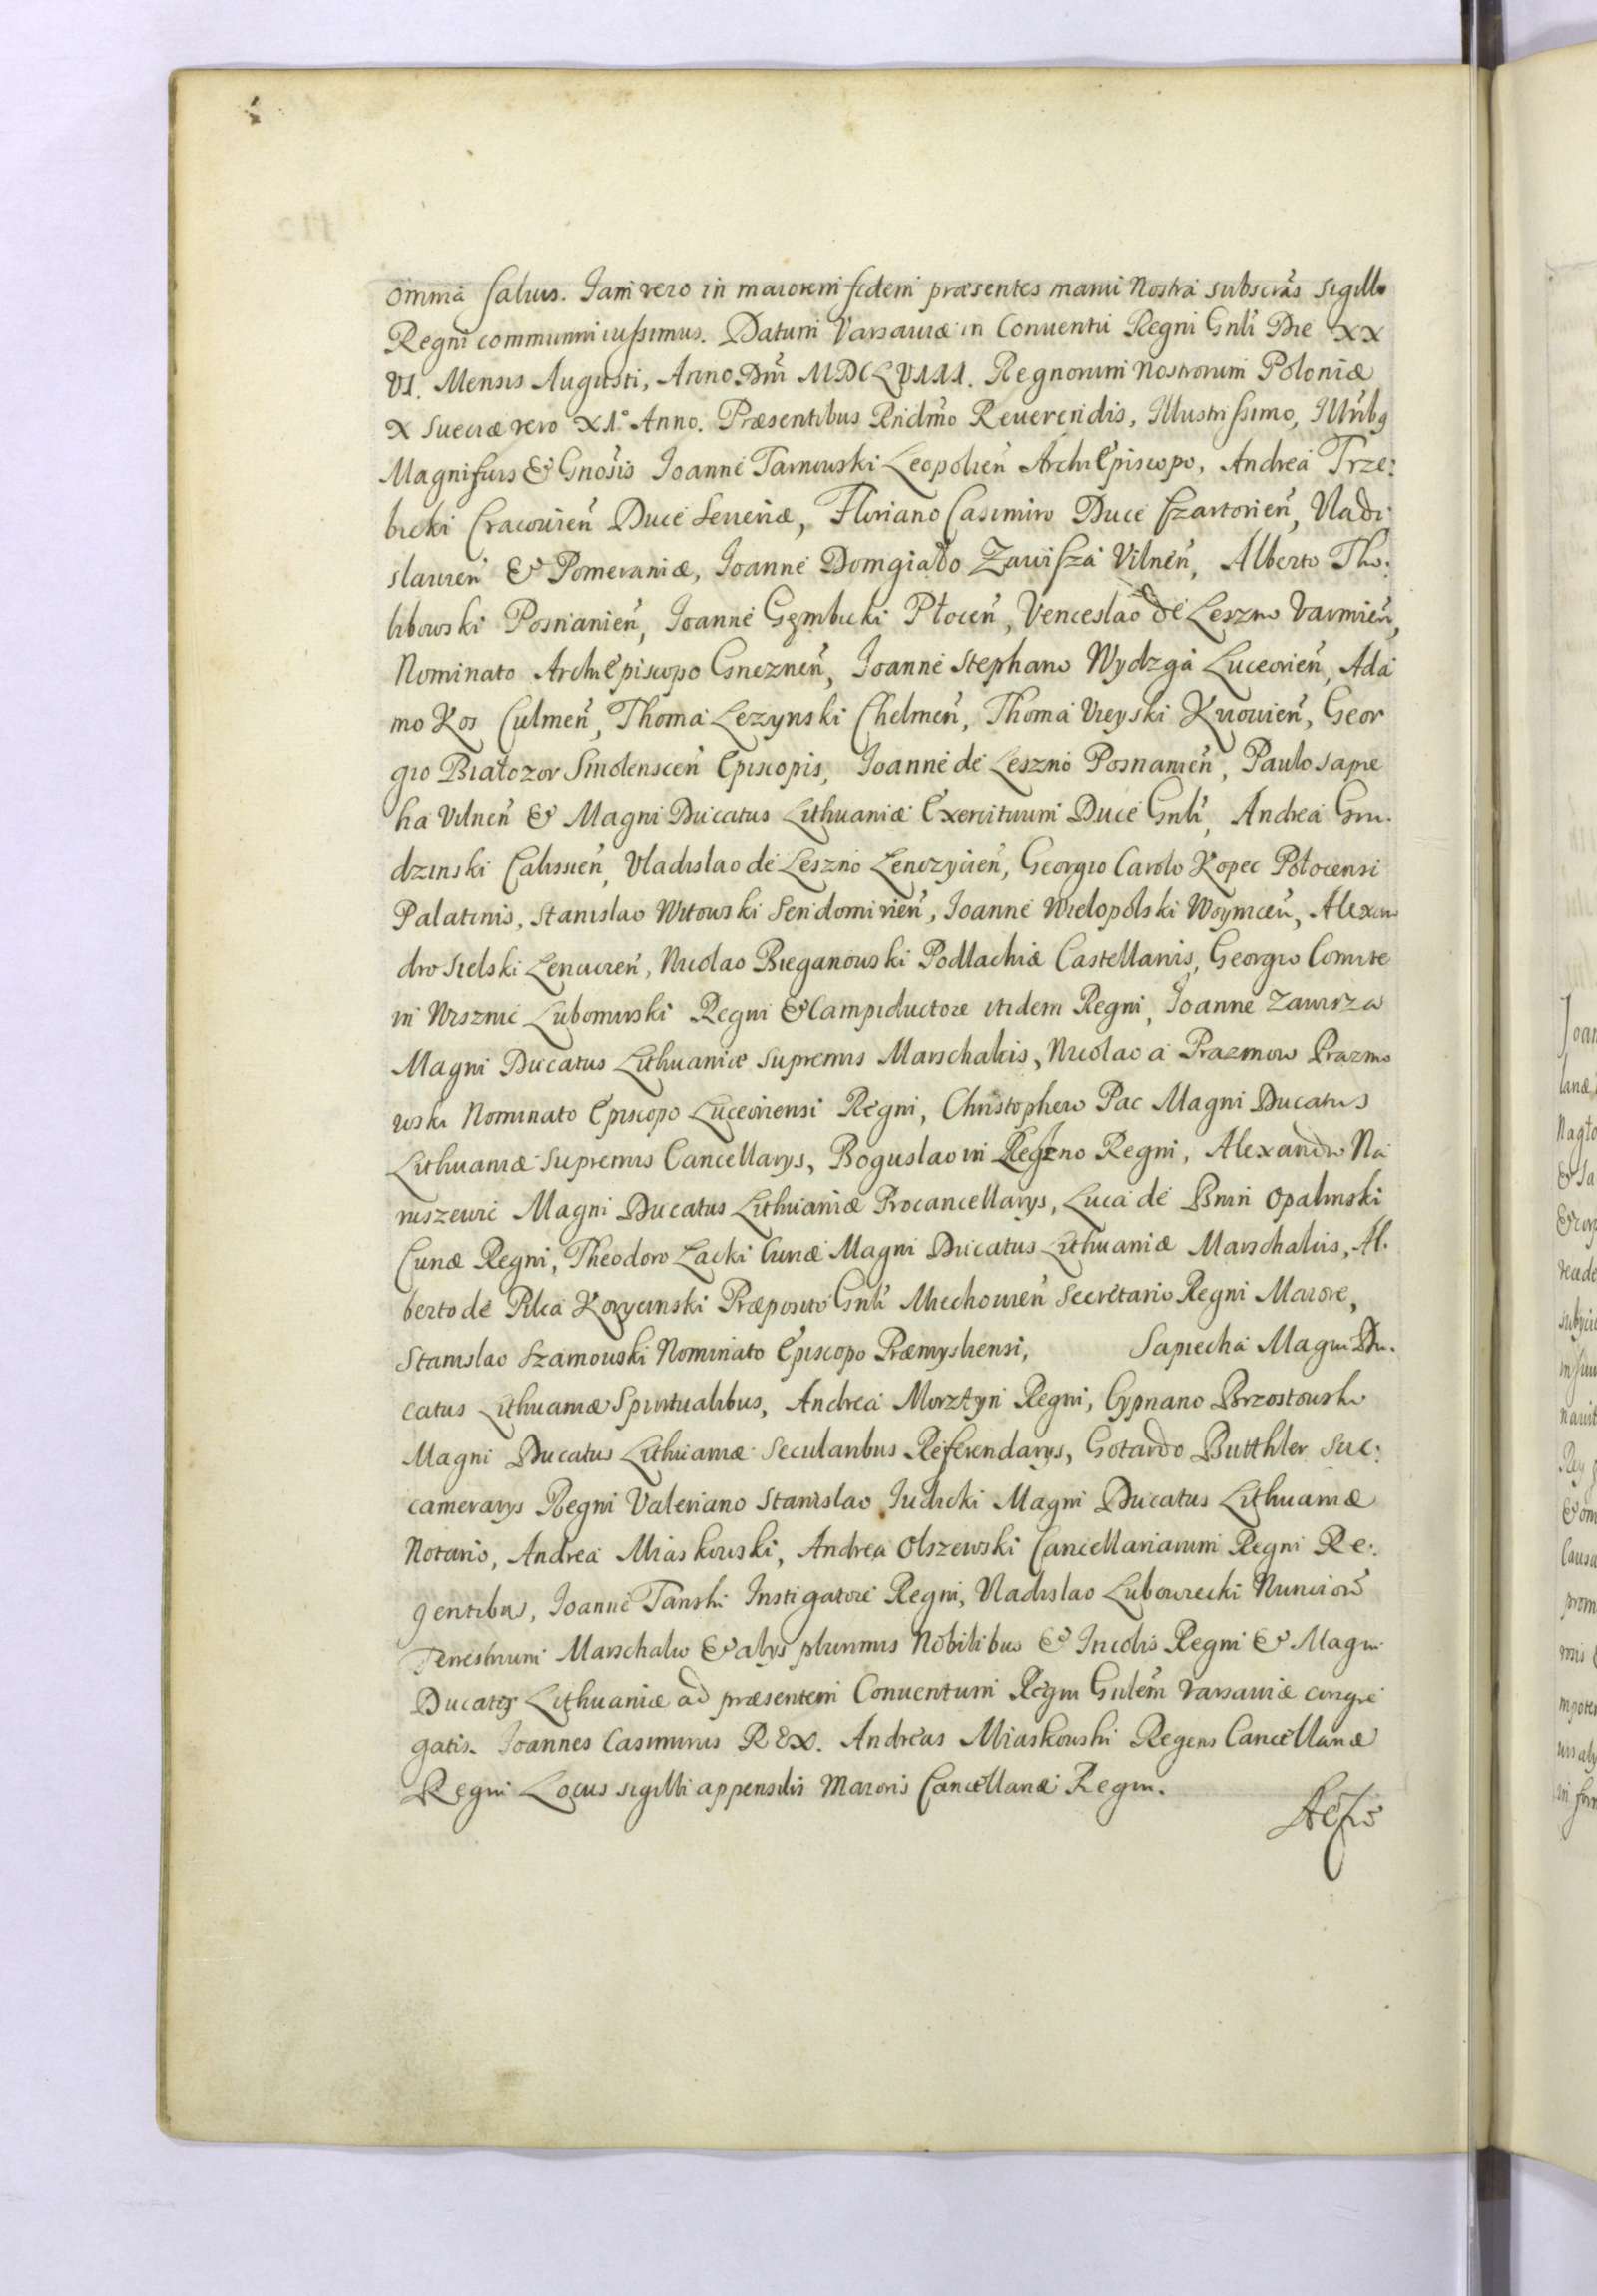 omnia salvis. Iam vero in maiorem fidem præsentes manu Nostrâ subscrãs sigillo
Regni communiri iussimus. Datum Varsaviæ in Conventu Regni Gnli Die XX
VI. Mensis Augusti, Anno Dni MDCLVIII. Regnorum Nostrorum Poloniæ
X Sueciæ vero XI.° Anno. Præsentibus Rndmo Reverendis, Illustrissimo, Illribq
Magnificis & Gnosis Joanne Tarnowski Leopolien Archiepiscopo, Andrea Trze:
bicki Cracovien Duce Severiæ, Floriano Casimiro Duce Czartorien, Vladi
slavien & Pomeraniæ, Joanne Domgiało Zawisza Vilnen, Alberto Tho:
libowski Posnanien, Joanne Gembicki Płocen, Venceslao de Leszno Varmien,
Nominato Archiepiscopo Gneznen, Joanne Stephano Wydzga Luceorien, Ada
mo Kos Culmen, Thoma Lezynski Chelmen, Thoma Vieyski Kiiovien, Geor
gio Białozor Smolenscen Episcopis, Joanne de Leszno Posnanien, Paulo Sapie
ha Vilnen & Magni Ducatus Lithuaniæ Exercituum Duce Gnli, Andrea Gru.
dzinski Calissien, Vladislao de Leszno Lenczycien, Georgio Carolo Kopec Połocensi
Palatinis, Stanislao Witowski Sendomirien, Joanne Wielopolski Woynicen, Alexan
dro Sielski Lencicien, Nicolao Bieganowski Podlachiæ Castellanis, Georgio Comite
in Wisznic Lubomirski Regni & Campiductore itidem Regni, Joanne Zawisza
Magni Ducatus Lithuaniæ Supremis Marschalcis, Nicolao a Prazmow Prazmo
wski Nominato Episcopo Luceoriensi Regni, Christophero Pac Magni Ducatus
Lithuaniæ Supremis Cancellarys, Boguslao in Regni, Alexandro Na
ruszewic Magni Ducatus Lithuaniæ Procancellarys, Luca de Bnin Opalinski
Curiæ Regni, Theodoro Lacki Curiæ Magni Ducatus Lithuaniæ Marschalcis, Al.
berto de Pilca Korycinski Præposito Gnli Miechovien Secretario Regni Maiore,
Stanislao Szarnowski Nominato Episcopo Præmysliensi, Sapiecha Magni Du.
catus Lithuaniæ Spiritualibus, Andrea Morztyn Regni, Cypriano Brzostowski
Magni Ducatus Lithuaniæ Secularibus Referendarys, Gotardo Butthler Suc:
camerarys Regni Valeriano Stanislao Judicki Magni Ducatus Lithuaniæ
Notario, Andrea Miaskowski, Andrea Olszewski Cancellariarum Regni Re:
gentibus, Joanne Tanski Instigatore Regni, Vladislao Lubowiecki Nuncior
Terrestrium Marschalco & alys plurimis Nobilibus & Incolis Regni & Magni
Ducatus Lithuaniæ ad præsentem Conventum Regni Gnlem Varsaviæ congre
gatis. Joannes Casimirus REX. Andreas Miaskowski Regens Cancellariæ
Regni Locus sigilli appensilis Maioris Cancellariæ Regni.